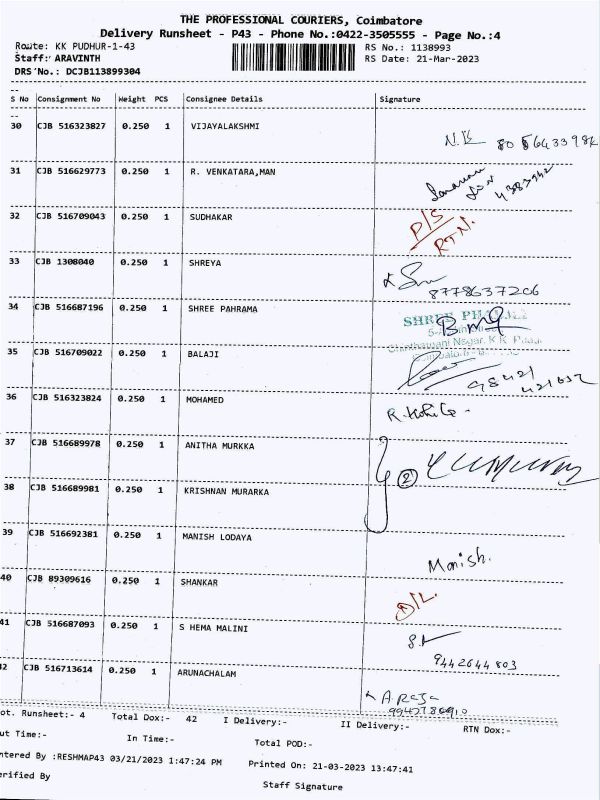 THE PROFESSIONAL COURIERS, Coimbatore
Delivery Runsheet - P43 - Phone No.:0422-3505555 - Page No.:4
Route: KK PUDHUR-1-43 RS No.: 1138993
Staff: ARAVINTH RS Date: 21-Mar-2023
DRS No.: DCJB113899304
S No Consignment No Weight PCS Consignee Details Signature
30 CJB 516323827 0.250 1 VIJAYALAKSHMI N.K
31 CJB 516629773 0.250 1 R. VENKATARA,MAN
32 CJB 516709043 0.250 1 SUDHAKAR P/S
RTN.
33 CJB 1308040 0.250 1 SHREYA
8778637206
34 CJB 516687196 0.250 1 SHREE PAHRAMA SHREE
35 CJB 516709022 0.250 1 BALAJI 98421
421632
36 CJB 516323824 0.250 1 MOHAMED
37 CJB 516689978 0.250 1 ANITHA MURKKA 2
38 CJB 516689981 0.250 1 KRISHNAN MURARKA
39 CJB 516692381 0.250 1 MANISH LODAYA Manish.
40 CJB 89309616 0.250 1 SHANKAR D/L.
41 CJB 516687093 0.250 1 S HEMA MALINI
9442644803
42 CJB 516713614 0.250 1 ARUNACHALAM A. Raja
ot. Runsheet:- 4 Total Dox:- 42 I Delivery:- II Delivery:- RTN Dox:-
ut Time:- In Time:- Total POD:-
ntered By :RESHMAP43 03/21/2023 1:47:24 PM Printed On: 21-03-2023 13:47:41
erified By Staff Signature